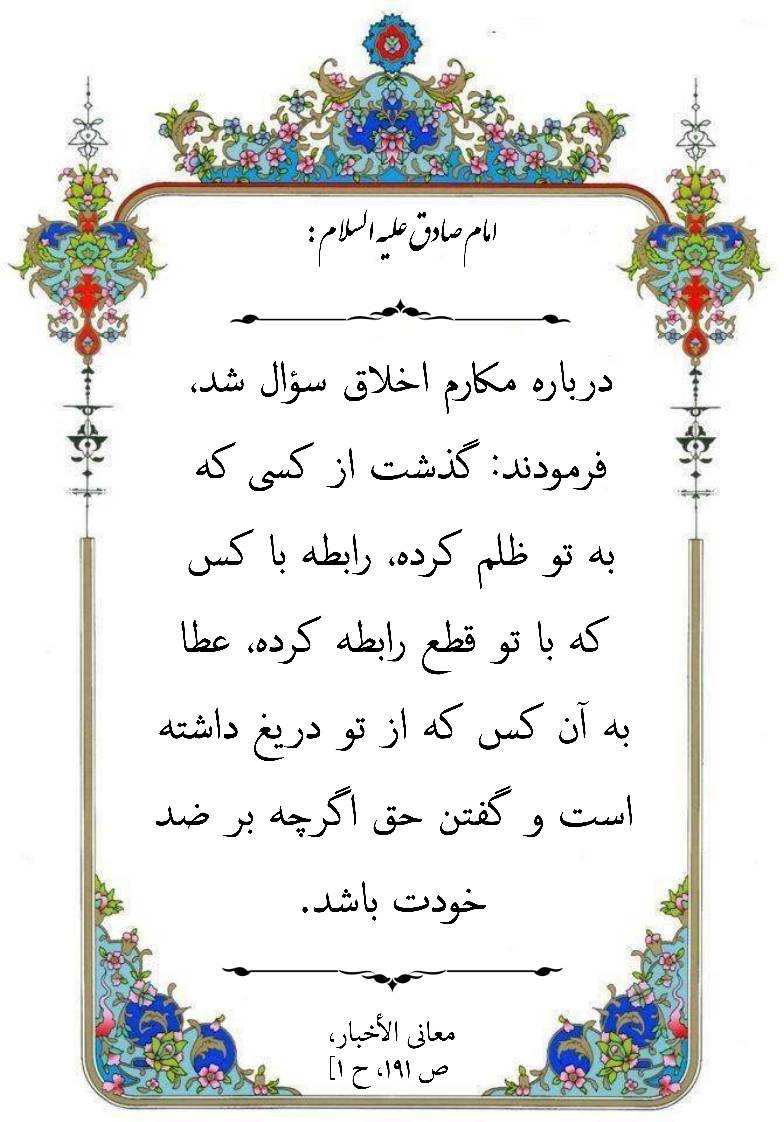 امام صادق علیه السلام :
درباره مکارم اخلاق سؤال شد،
فرمودند: گذشت از کسی که
به تو ظلم کرده، رابطه با کس
که با تو قطع رابطه کرده، عطا
به آن کس که از تو دریغ داشته
است و گفتن حق اگرچه بر ضد
خودت باشد.
معانی الأخبار،
ص ۱۹۱، ح ۱]